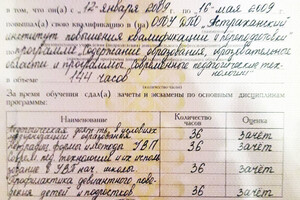 в том, что он(а) с «12» января 2009 г. по «16» мая 2009 г.
повышал(а) свою квалификацию в (на) ОГОУ ДПО "Астраханский
институт повышения квалификации и переподготовки"
по программе "Содержание образования, образовательные
области и программы. Современные педагогические техно-
логии"
в объеме 144 часов
За время обучения сдал(а) зачеты и экзамены по основным дисциплинам
программы:
Наименование Количество часов Оценка
в условиях
образования 36 зачёт
формы и методы УВП 36 зачёт
Соврем. пед. технологии и их исполь-
зование в УВП нач. школы. 36 зачёт
Профилактика девиантного пове-
дения детей и подростков. 36 зачёт